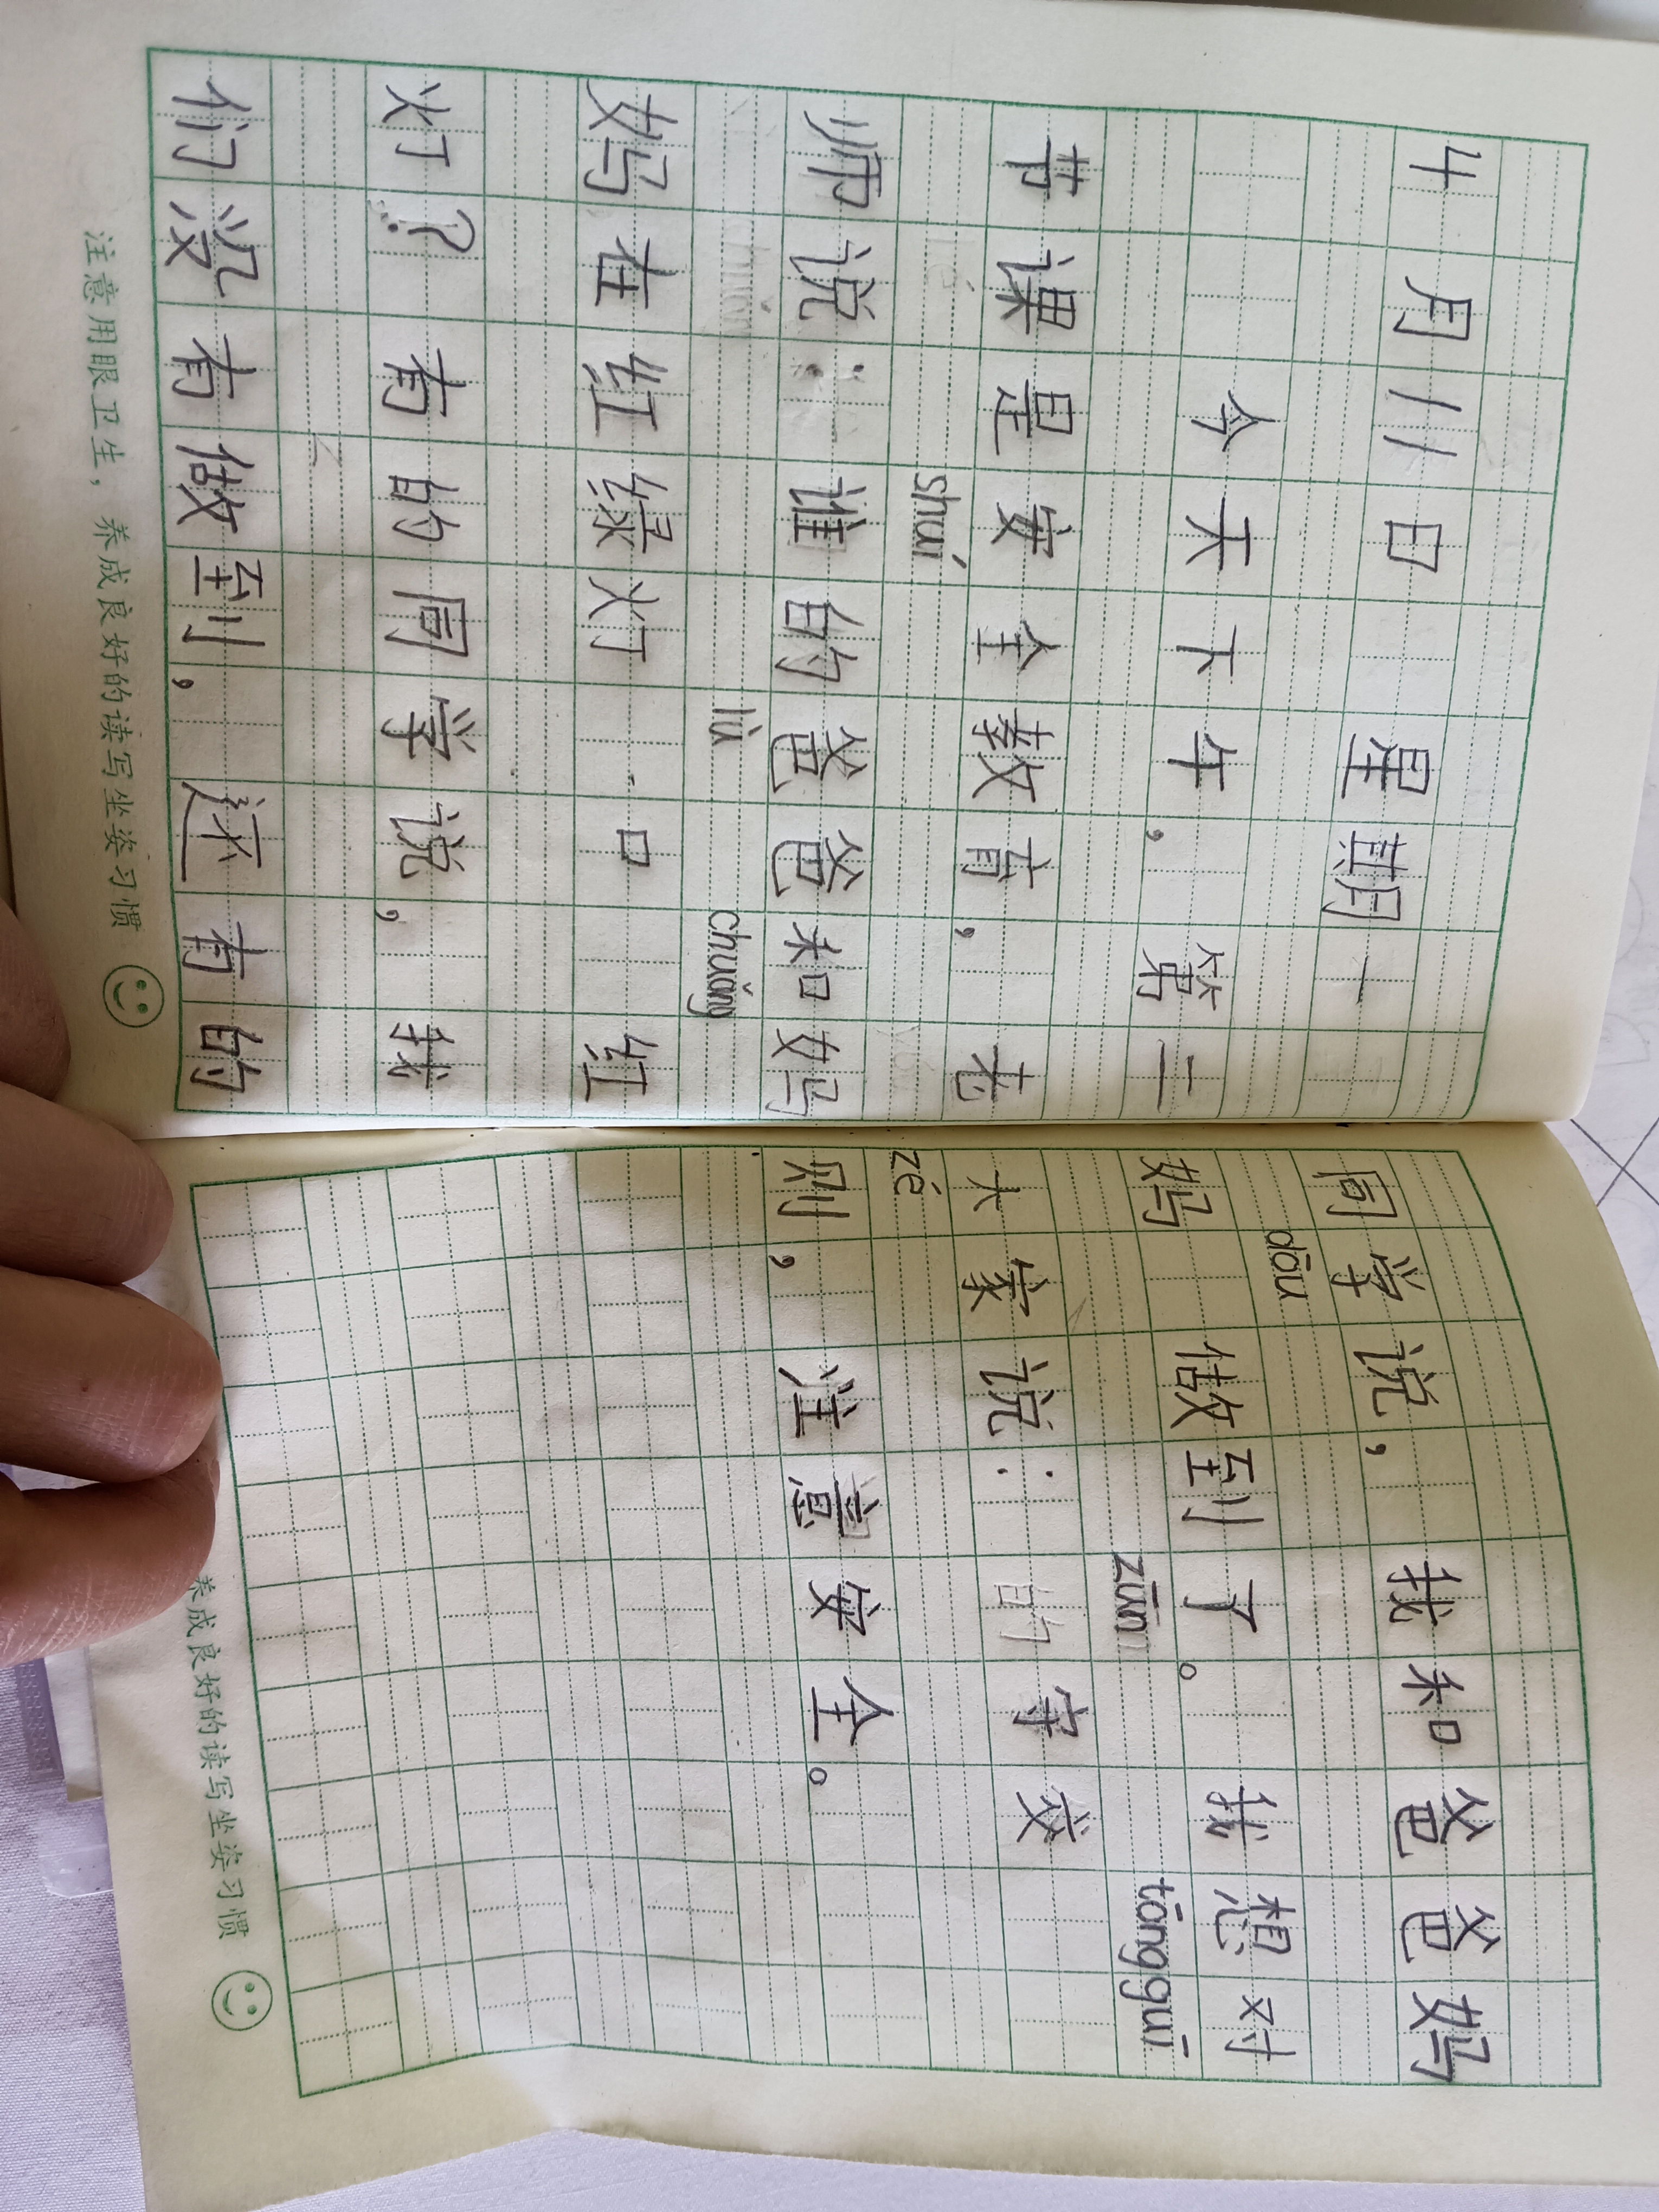 4月11日 星期一
今天下午，第二
节课是安全教育，老
shuí
师说：谁的爸爸和妈
lǜ chuǎng
妈在红绿灯口 红
灯？有的同学说，我
们没有做到，还有的
注意用眼卫生，养成良好的读写坐姿习惯
同学说，我和爸爸妈
dōu
妈 做到了。我想对
zūn tōngguī
大家说： 守交
zé
则，注意安全。
养成良好的读写坐姿习惯